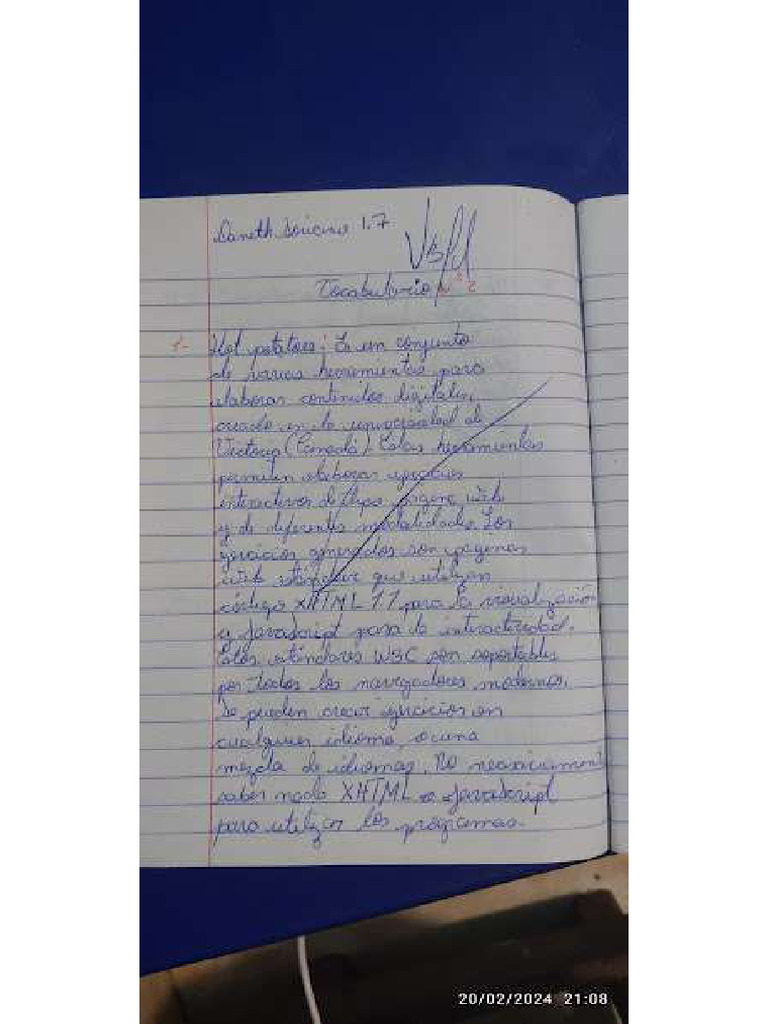 1.7
Vocabulario Nº 2
1- Hot potatoes: Es un conjunto
de varias herramientas para
elaborar contenidos digitales,
creado en la universidad de
Victoria (Canadá). Estas herramientas
permiten elaborar ejercicios
interactivos de tipo página web
y de diferentes modalidades. Los
ejercicios generados son paginas
web estándar que utilizan
código XHTML 1.1 para la visualización
y JavaScript para la interactividad.
Estos estándares W3C son soportables
por todos los navegadores modernos.
Se pueden crear ejercicios en
cualquier idioma, o una
mezcla de idiomas. No
saber nada XHTML o JavaScript
para utilizar los programas.
20/02/2024 21:08